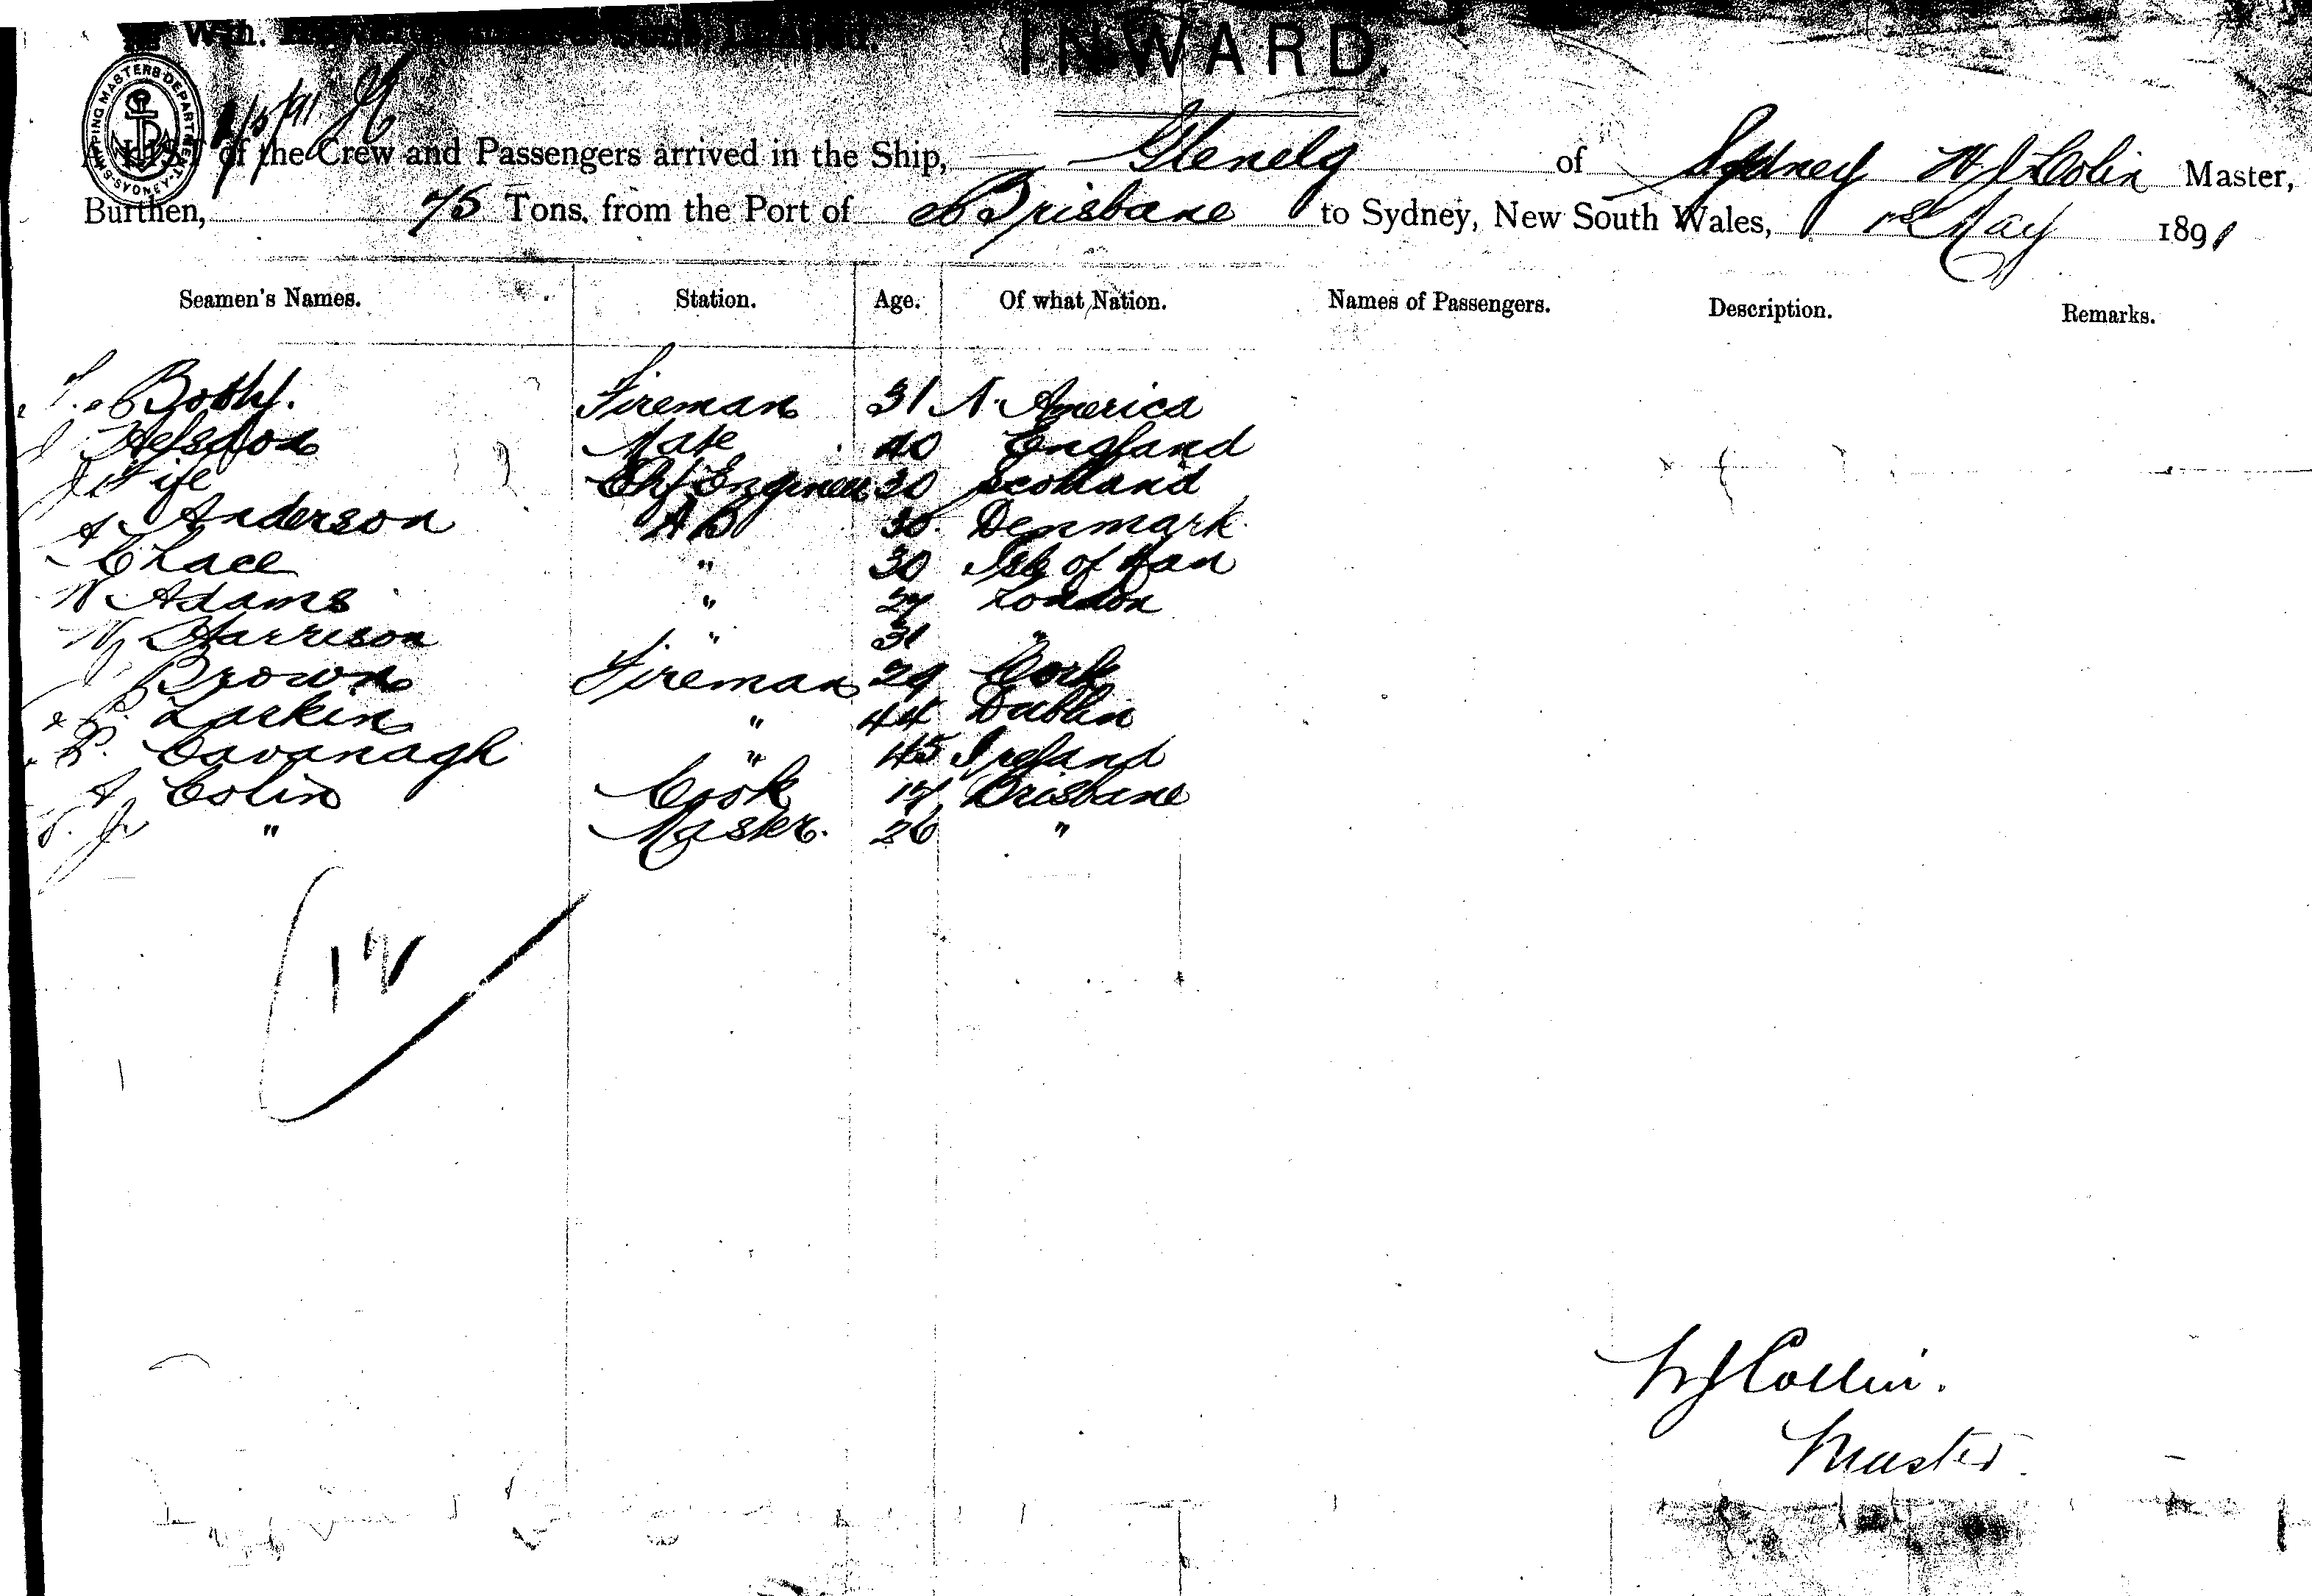 Wm.
INWARD.
SHIPPING MASTERS DEPARTMENT SYDNEY
2/5/91
A LIST of the Crew and Passengers arrived in the Ship, Glenelg of Sydney W J Colin Master,
Burthen, 75 Tons, from the Port of Brisbane to Sydney, New South Wales, 1st May 1891
Seamen's Names. Station. Age. Of what Nation. Names of Passengers. Description. Remarks.
Fireman 31 N. America
J Mate 40 England
J Fife Chf Engineer 30 Scotland
A Anderson A B 30. Denmark
C Lace " 30 Isle of Man
W Adams " 27 London
W Harrison " 31 "
J Brown Fireman 29 Cork
P. Larkin " 44 Dublin
P. Cavanagh " 45 Ireland
A Colin Cook 17 Brisbane
W. J. " Master. 26 "
12
W J Collin.
Master.